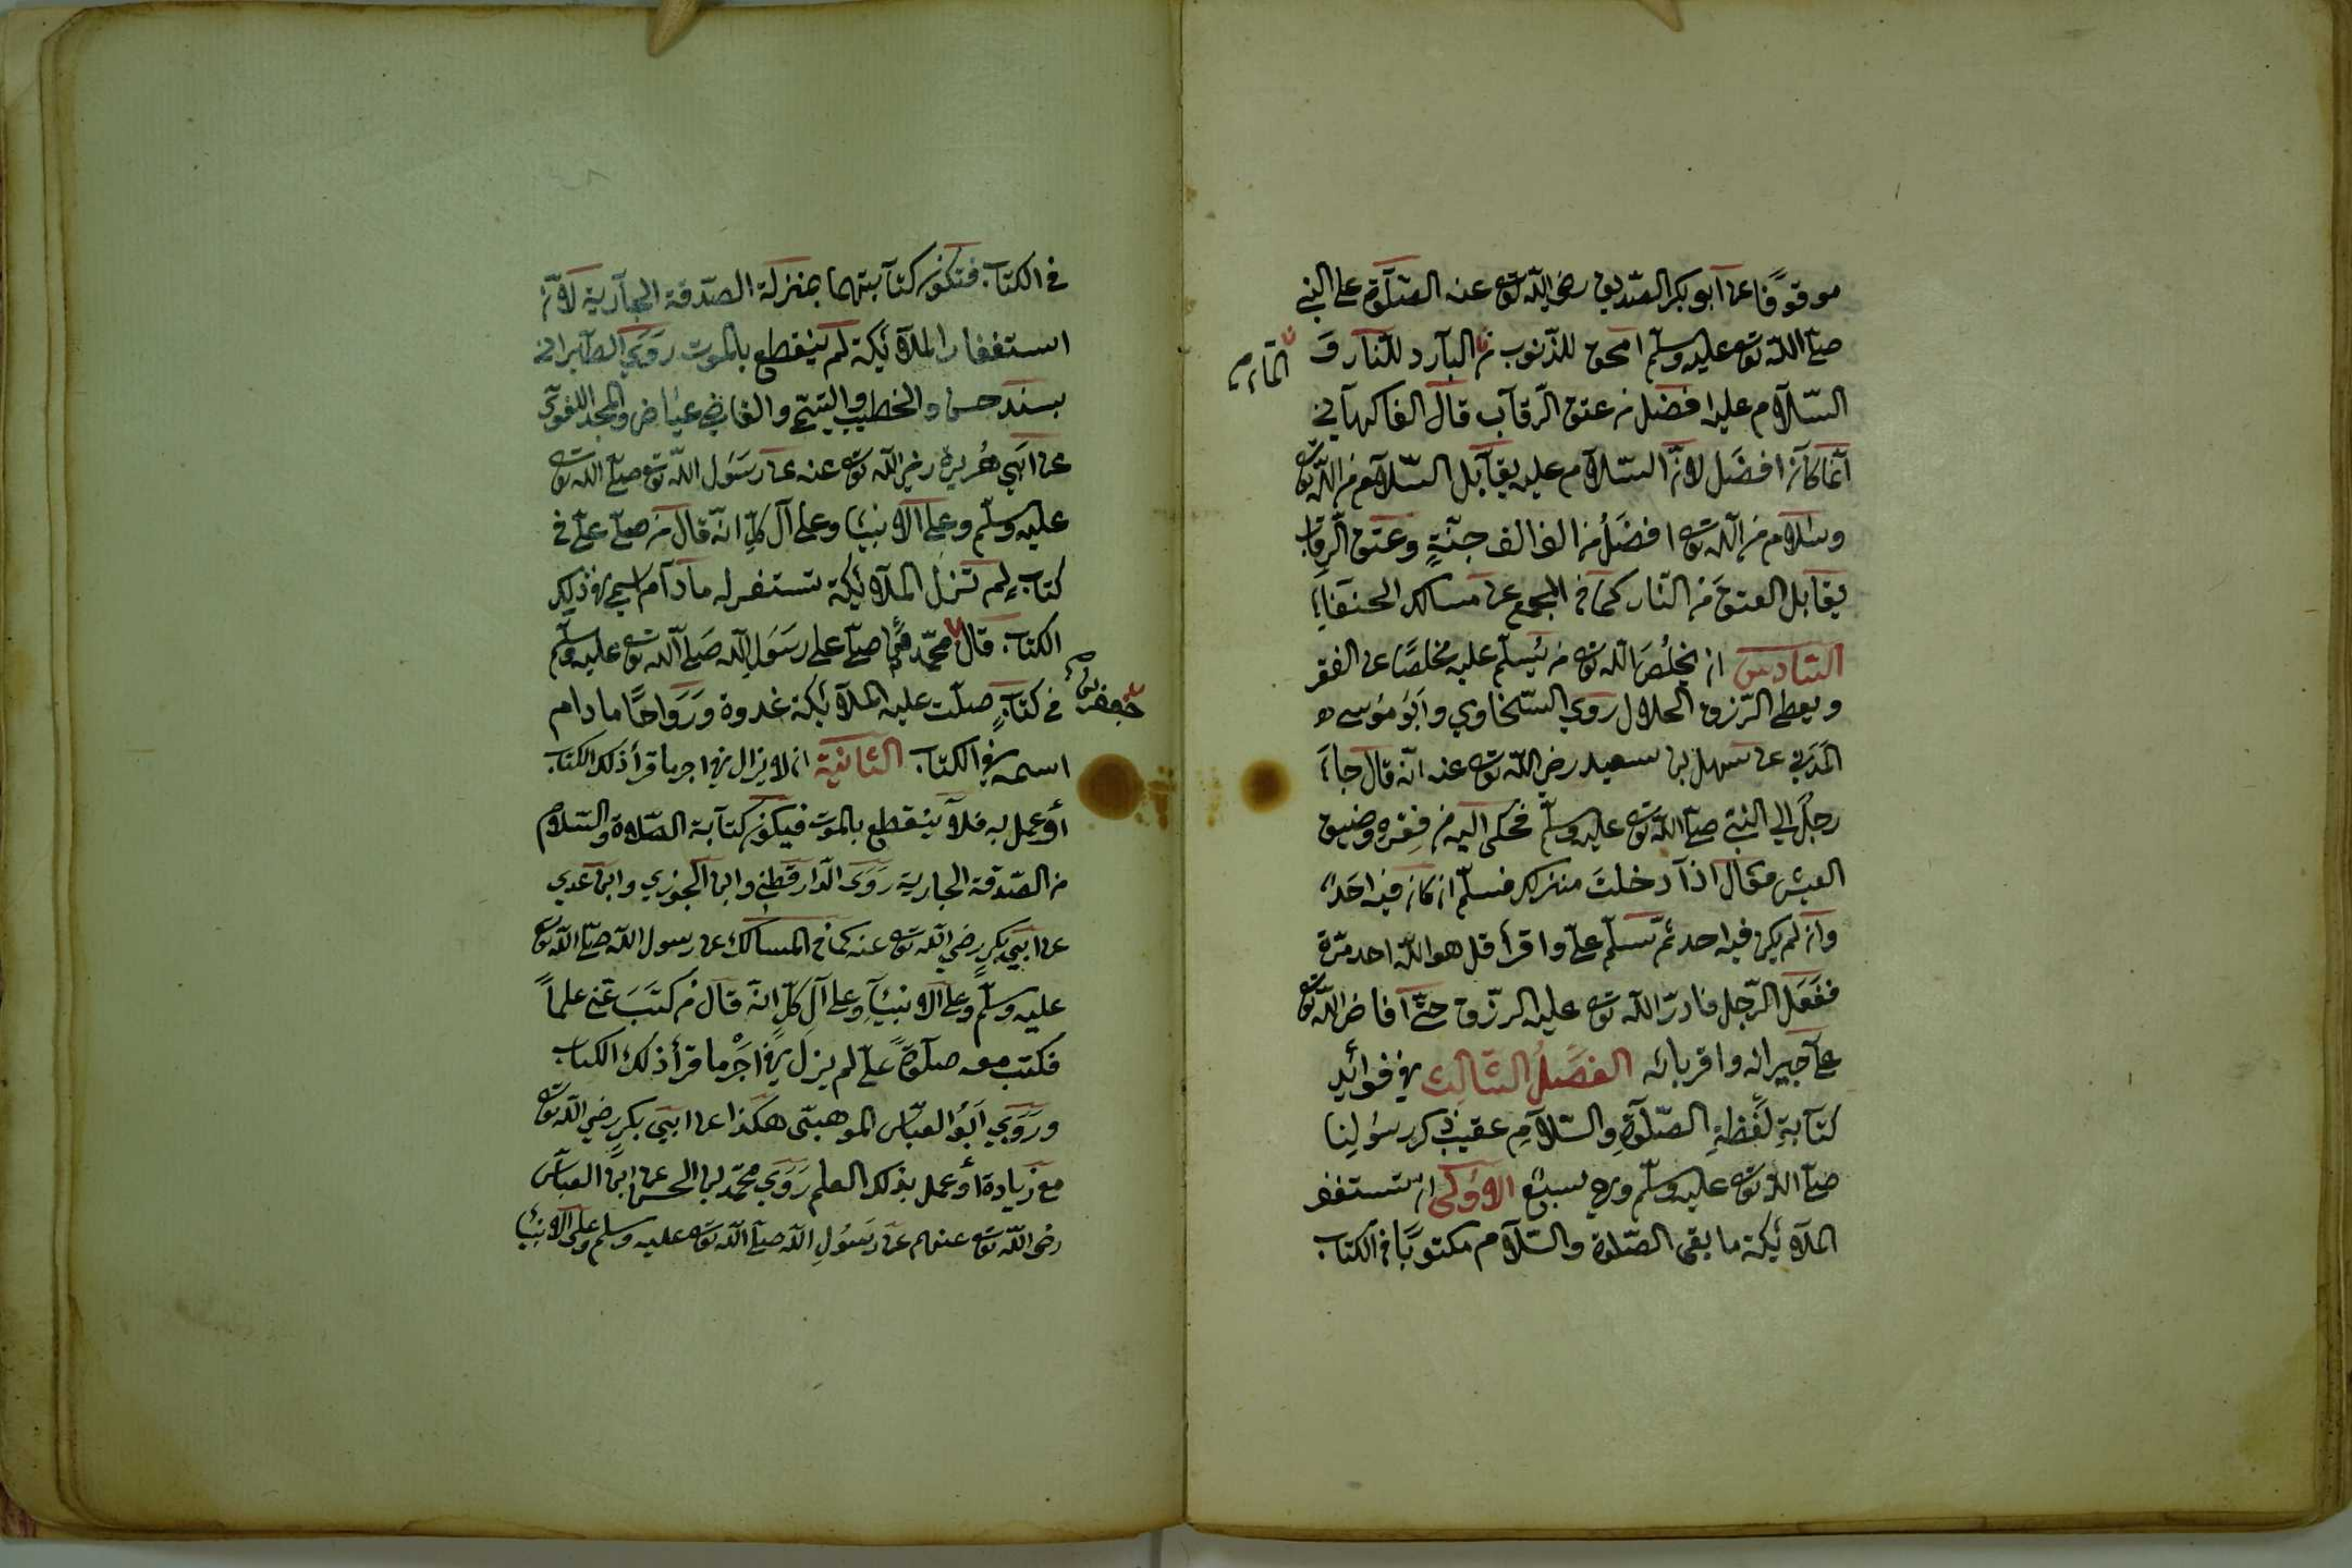 موقوفًا عن أبو بكر الصديق رضي الله تع عنه الصلوة على النبي
صلى الله تع عليه وسلم امحق للذنوب من البارد للنار و
الماء صح
السلام عليه افضل من عتق الرقاب قال الفاكهاني
انما كان افضل لان السلام عليه يقابل السلام من الله تع
وسلام من الله تع افضل من الف الف جنة وعتق الرقاب
يقابل العتق من النار كما في المجمع عن مسالك الحنفاء
السادس ان يخلص الله تع من يسلم عليه مخلصًا عن الفقر
ويعطى الرزق الحلال روى السخاوي وابو موسى
المدني عن سهل بن سعيد رضي الله تع عنه انه قال جاء
رجل الى النبي صلى الله تع عليه وسلم فحكى اليه من فقره وضيق
العيش فقال اذا دخلت منزلك فسلم ان كان فيه احد
وان لم يكن فيه احد ثم تسلم علي واقرأ قل هو الله احد مرة
ففعل الرجل فادر الله تع عليه الرزق حتى افاض الله تع
على جيرانه واقربائه الفصل الثالث في فوائد
كتابة لفظة الصلوة والسلام عقيب ذكر رسولنا
صلى الله تع عليه وسلم وهي سبع الاولى ان تستغفر
الملائكة ما بقى الصلوة والسلام مكتوبًا في الكتاب
في الكتاب فتكون كتابتهما بمنزلة الصدقة الجارية لان
استغفار الملائكة لم ينقطع بالموت روى الطبراني
بسند حسن والخطيب والتيمي والقاضي عياض والمجد اللغوي
عن ابي هريرة رضي الله تع عنه عن رسول الله تع صلى الله تع
عليه وسلم وعلى الانبياء وعلى آل كل انه قال من صلى علي في
كتاب لم تزل الملائكة تستغفر له ما دام اسمي في ذلك
الكتاب قال محمد من صلى على رسول الله صلى الله تع عليه وسلم
جعفر بن صح
في كتاب صلت عليه الملائكة غدوة ورواحًا ما دام
اسمه في الكتاب الثانية ان لا يزال في اجر ما قرأ ذلك الكتاب
أو عمل به فلا ينقطع بالموت فيكون كتابة الصلاة والسلام
من الصدقة الجارية روى الدارقطني وابن الجوزي وابن عدي
عن ابي بكر رضي الله تع عنه كما في المسالك عن رسول الله صلى الله تع
عليه وسلم وعلى الانبياء وعلى آل كل انه قال من كتب عني علماً
فكتب معه صلوة علي لم يزل في اجر ما قرأ ذلك الكتاب
وروى ابو العباس الموهبي هكذا عن ابي بكر رضي الله تع
مع زيادة أو عمل بذلك العلم روى محمد بن الحسن عن ابن العباس
رضي الله تع عنهم عن رسول الله صلى الله تع عليه وسلم وعلى الانبياء